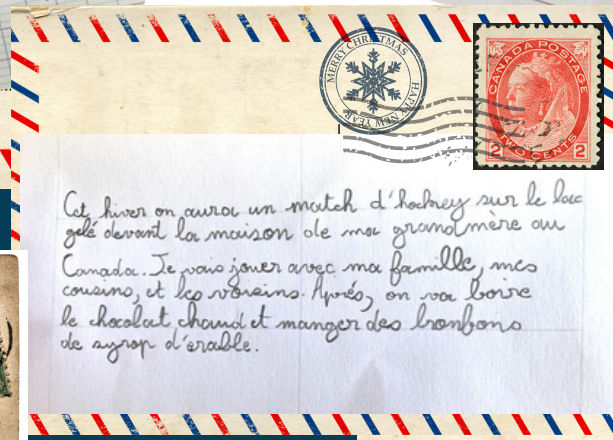 MERRY CHRISTMAS
HAPPY NEW YEAR
CANADA POSTAGE
2 TWO CENTS 2
Cet hiver on aura un match d'hockey sur le lac
gelé devant la maison de ma grandmère au
Canada. Je vais jouer avec ma famille, mes
cousins, et les voisins. Après, on va boire
le chocolat chaud et manger des bonbons
de syrop d'érable.